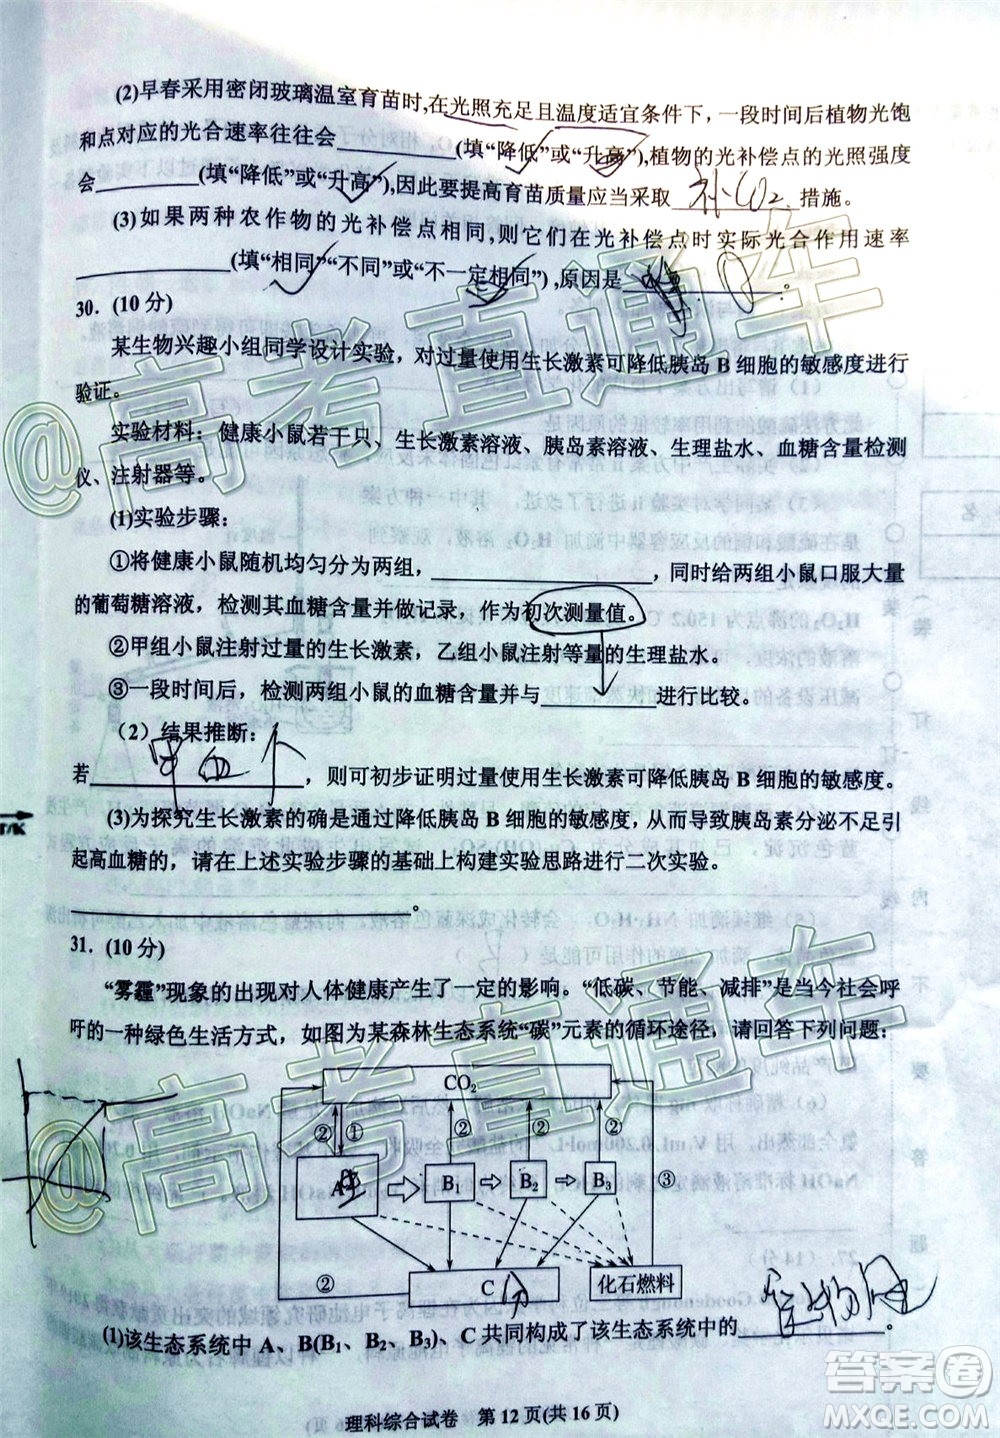 (2)早春采用密闭玻璃温室育苗时,在光照充足且温度适宜条件下,一段时间后植物光饱
和点对应的光合速率往往会________(填“降低”或“升高”),植物的光补偿点的光照强度
会________(填“降低”或“升高”),因此要提高育苗质量应当采取 补CO₂ 措施。
(3)如果两种农作物的光补偿点相同,则它们在光补偿点时实际光合作用速率
________(填“相同”“不同”或“不一定相同”),原因是________。
30. (10分)
某生物兴趣小组同学设计实验，对过量使用生长激素可降低胰岛 B 细胞的敏感度进行
验证。
实验材料：健康小鼠若干只、生长激素溶液、胰岛素溶液、生理盐水、血糖含量检测
仪、注射器等。
(1)实验步骤：
①将健康小鼠随机均匀分为两组，________，同时给两组小鼠口服大量
的葡萄糖溶液，检测其血糖含量并做记录，作为初次测量值。
②甲组小鼠注射过量的生长激素，乙组小鼠注射等量的生理盐水。
③一段时间后，检测两组小鼠的血糖含量并与________进行比较。
（2）结果推断：
若________，则可初步证明过量使用生长激素可降低胰岛 B 细胞的敏感度。
甲 血
(3)为探究生长激素的确是通过降低胰岛 B 细胞的敏感度，从而导致胰岛素分泌不足引
起高血糖的，请在上述实验步骤的基础上构建实验思路进行二次实验。
________。
31. (10分)
“雾霾”现象的出现对人体健康产生了一定的影响。“低碳、节能、减排”是当今社会呼
吁的一种绿色生活方式，如图为某森林生态系统“碳”元素的循环途径，请回答下列问题：
CO₂
② ① ② ② ②
A B₁ B₂ B₃ ③
② C 分 化石燃料
(1)该生态系统中 A、B(B₁、B₂、B₃)、C 共同构成了该生态系统中的________。
理科综合试卷 第 12 页(共 16 页)
@高考直通车
@高考直通车
答案圈
MXQE.COM